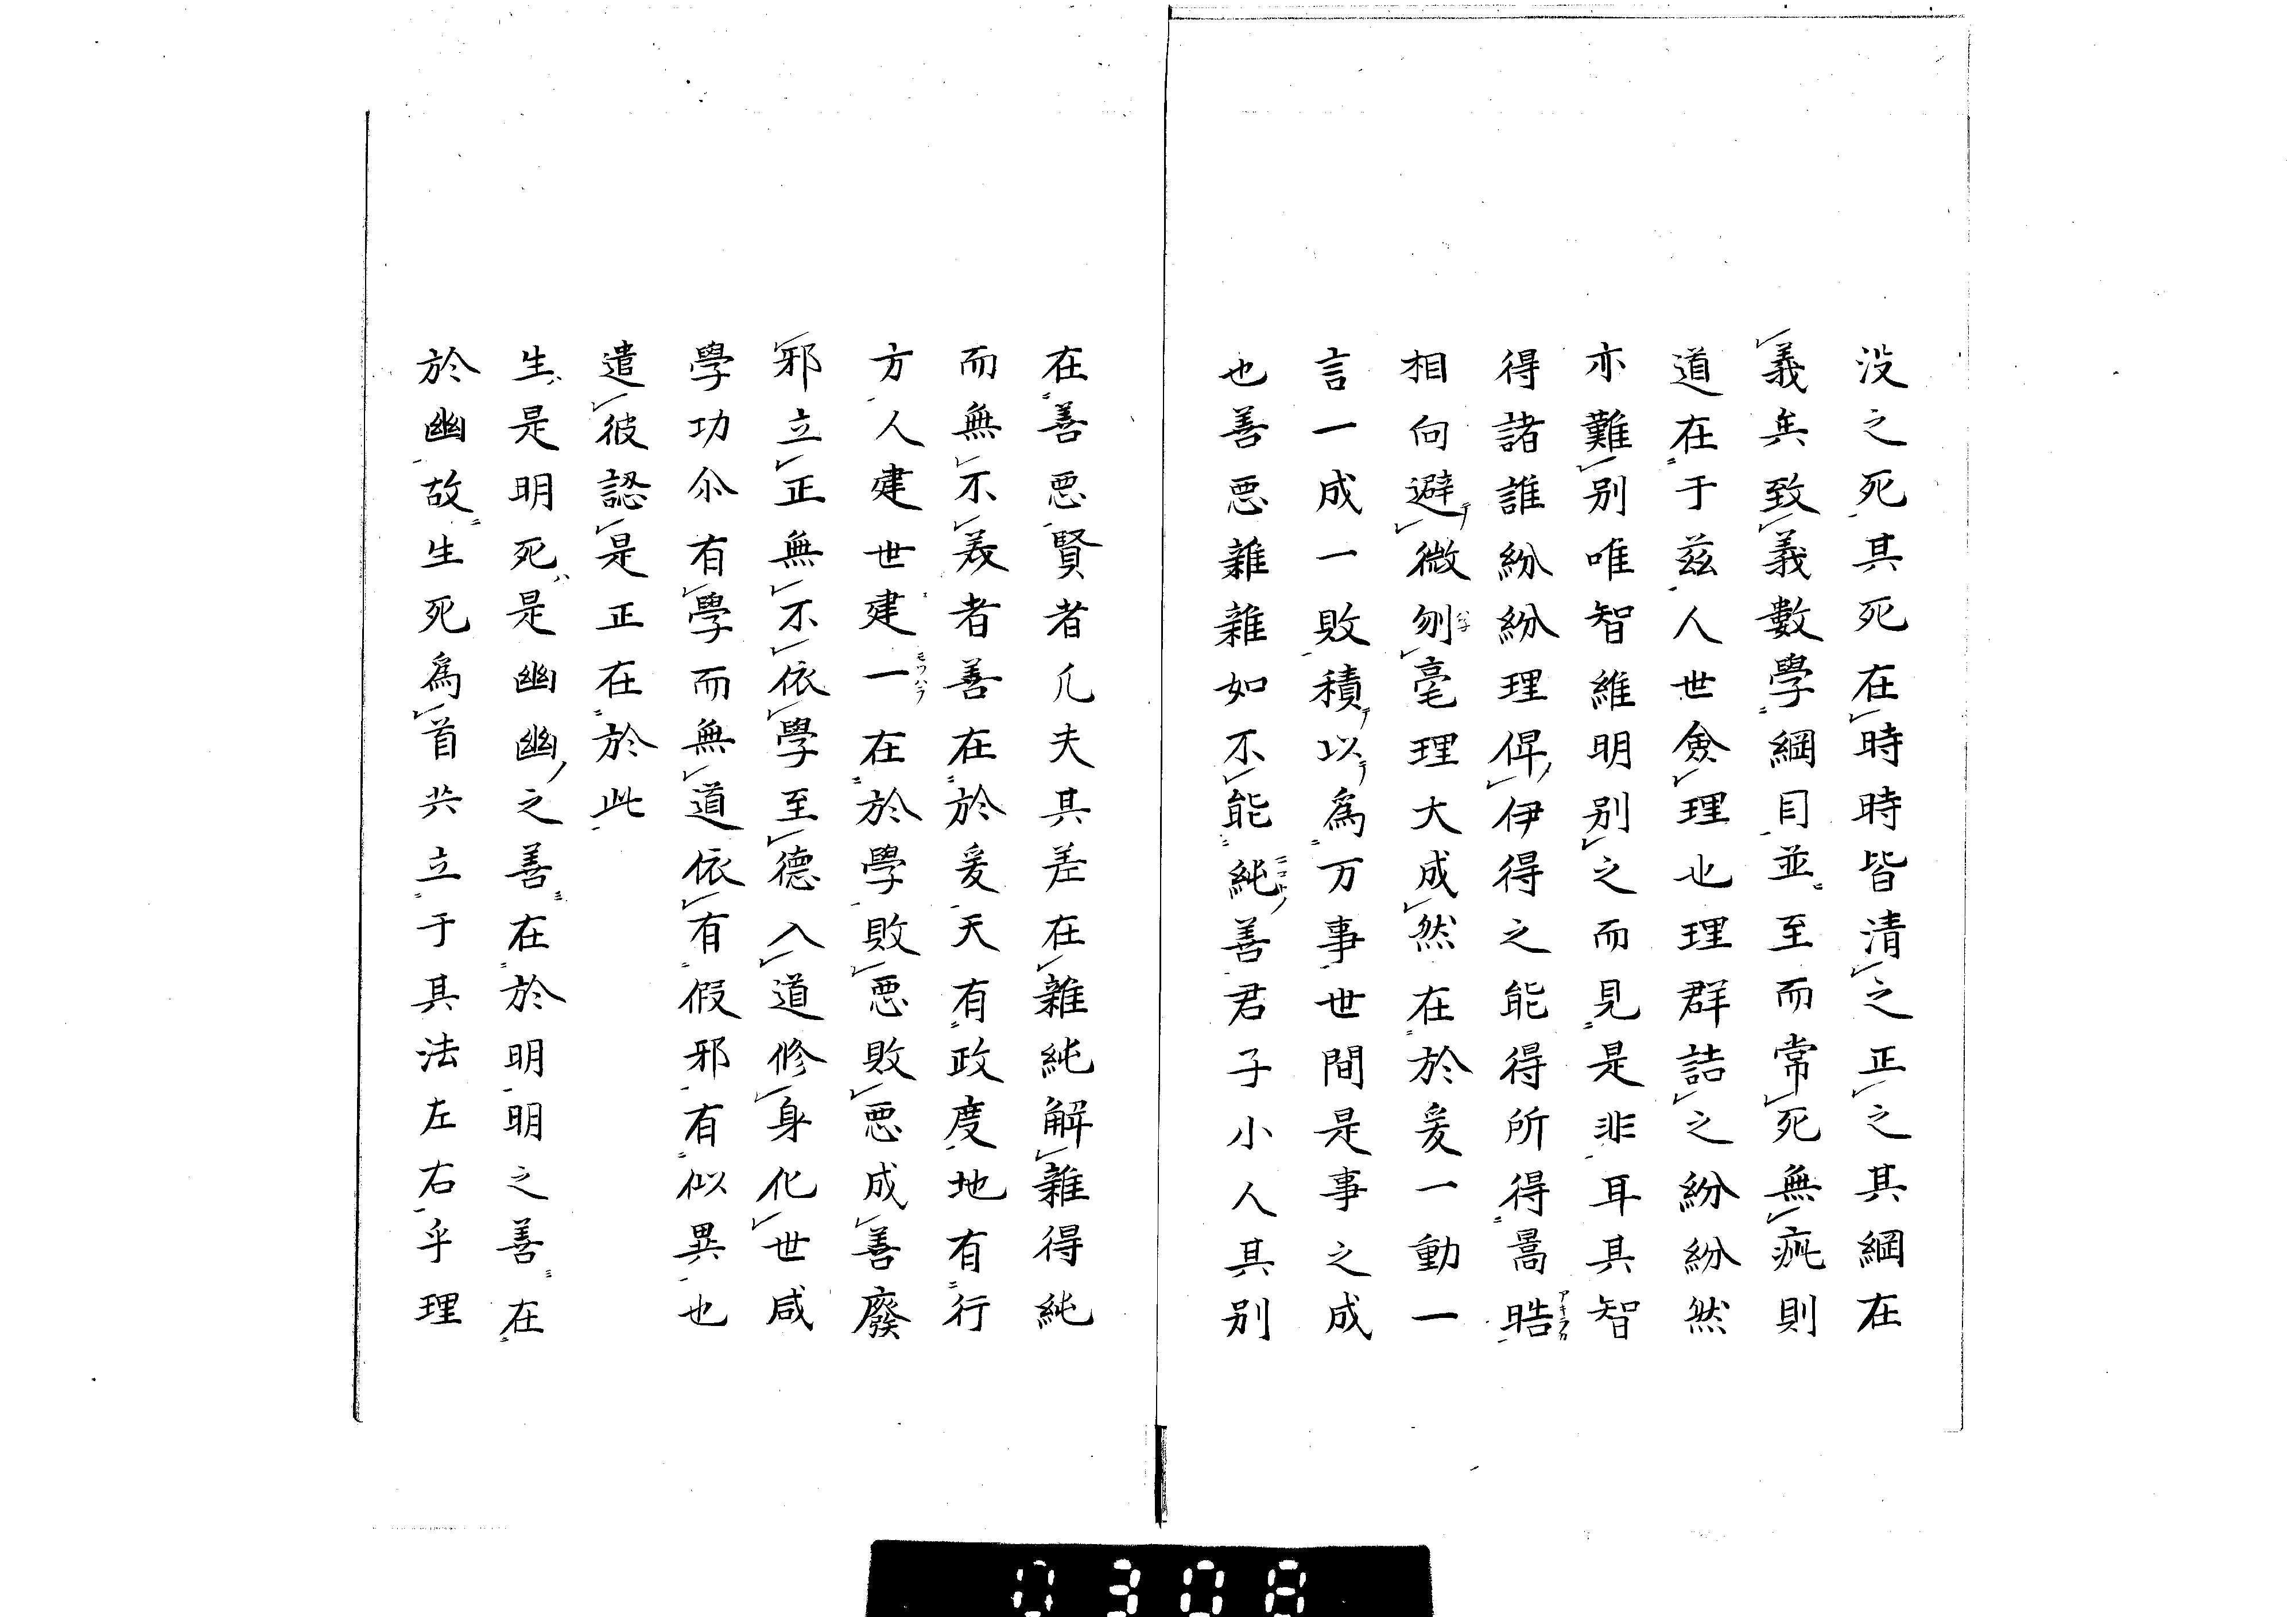 没之死其死在時時皆清之正之其綱在
義矣致義數學綱目並至而常死無疵則
道在于茲人世僉理也理群詰之紛紛然
亦難別唯智維明別之而見是非耳其智
得諸誰紛紛理俾伊得之能得所得暠晧
相向避微刎毫理大成然在於爰一動一
言一成一敗積以為万事世間是事之成
也善悪雜雜如不能純善君子小人其別
在善悪賢者凡夫其差在雜純解雜得純
而無不義者善在於爰天有政度地有行
方人建世建一在於學敗悪敗悪成善廢
邪立正無不依學至德入道修身化世咸
學功尒有學而無道依有假邪有似異也
遣彼認是正在於此
生是明死是幽幽之善在於明明之善在
於幽故生死為首共立于其法左右乎理
0308